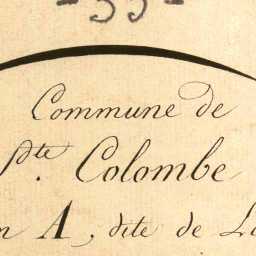 - 55 -
Commune de
Ste. Colombe
n A, dite de La